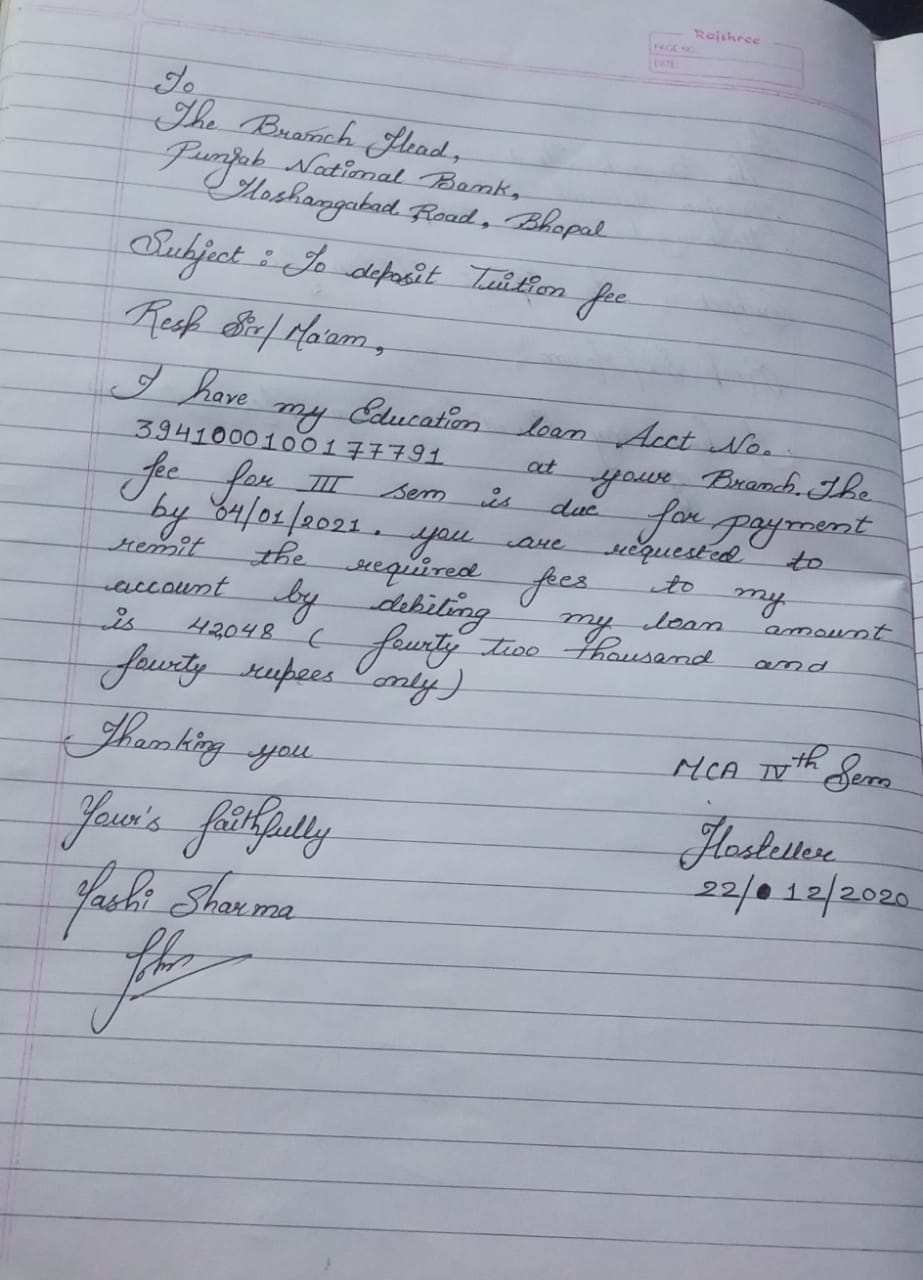 Rajshree
PAGE NO.
DATE:
To
The Branch Head,
Punjab National Bank,
Hoshangabad Road, Bhopal
Subject : To deposit Tuition fee
Resp Sir/Ma'am,
I have my Education loan Acct No.
3941000100177791 at your Branch. The
fee for III sem is due for payment
by 04/01/2021. you are requested to
remit the required fees to my
account by debiting my loan amount
is 42048 ( fourty two thousand and
fourty rupees only)
Thanking you
MCA IVth Sem
Your's faithfully
Hosteller
22/12/2020
Yashi Sharma